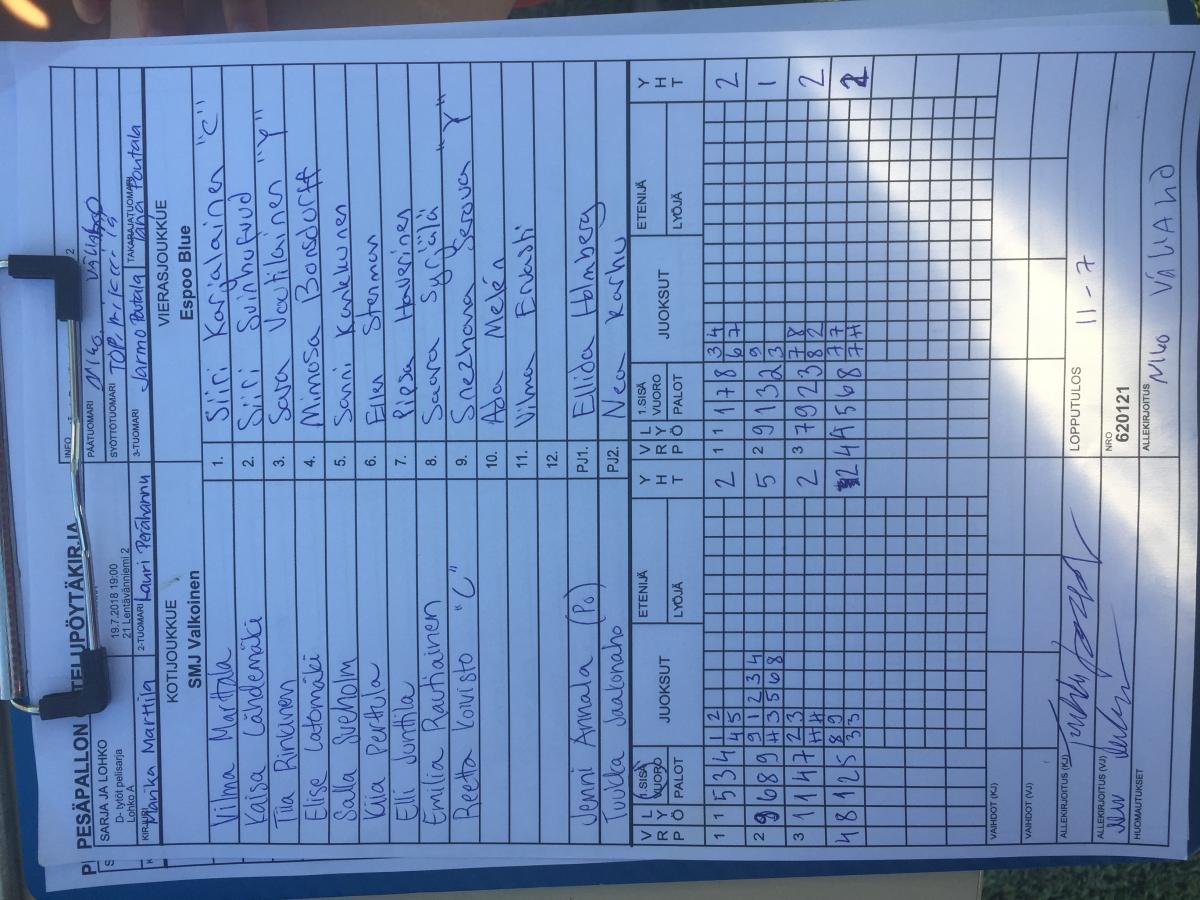 PESÄPALLON OTTELUPÖYTÄKIRJA
SARJA JA LOHKO
D- tytöt pelisarja
Lohko A
19.7.2018 19:00
21 Lentävänniemi 2
INFO
2
PÄÄTUOMARI
SYÖTTÖTUOMARI
KIRJURI Marika Marttila
2-TUOMARI Lauri Perähannu
3-TUOMARI Jarmo Poutala
TAKARAJATUOMARI Jaha Poutala
KOTIJOUKKUE
SMJ Valkoinen
VIERASJOUKKUE
Espoo Blue
Vilma Marttala 1. Siiri Karjalainen "C"
Kaisa Lähdemäki 2. Siiri Svinhufvud
Tiia Rinkinen 3. Sara Voutilainen "Y"
Elise Latomäki 4. Mimosa Bonsdorff
Salla Sveholm 5. Sanni Kankkunen
Kiia Perttula 6. Ellen Stenman
Elli Junttila 7. Pipsa Haverinen
Emilia Rautiainen 8. Saara Syrjälä
Reetta Koivisto "C" 9. Snezhana Serova "Y"
10. Ada Melén
11. Vilma Ervasti
12.
Jenni Annala (Po) PJ1. Ellida Holmberg
Tuukka Jaakonaho PJ2. Nea Karhu
VRP LYÖ 1.SISÄVUORO PALOT JUOKSUT ETENIJÄ LYÖJÄ YHT VRP LYÖ 1.SISÄ VUORO PALOT JUOKSUT ETENIJÄ LYÖJÄ YHT
1 1 5 3 4 1 2 2 1 1 1 7 8 3 4 2
4 5 6 7
2 9 6 8 9 9 1 2 3 4 5 2 9 1 3 2 9 1
# 3 5 6 8 3
3 1 1 4 7 2 3 2 3 7 9 2 3 7 8 2
# # 8 2
4 8 1 2 5 8 9 2 4 4 5 6 8 7 7
3 3 7 #
VAIHDOT (KJ)
VAIHDOT (VJ)
ALLEKIRJOITUS (KJ)
LOPPUTULOS 11 - 7
ALLEKIRJOITUS (VJ)
NRO
620121
HUOMAUTUKSET
ALLEKIRJOITUS